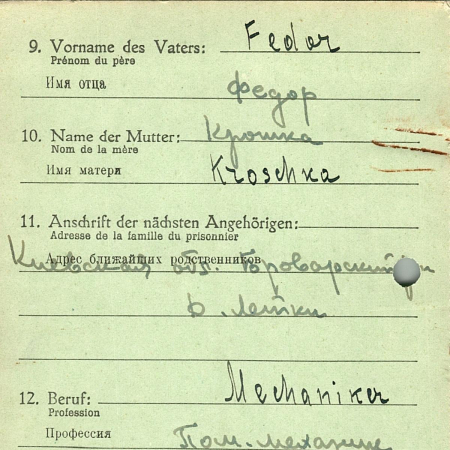 9. Vorname des Vaters: Fedor
Prénom du père
Имя отца Федор
10. Name der Mutter: Крошка
Nom de la mère
Имя матери Kroschka
11. Anschrift der nächsten Angehörigen:
Adresse de la famille du prisonnier
Адрес ближайших родственников
Киевская обл. Броварский
Летки
12. Beruf: Mechaniker
Profession
Профессия Пом. механике